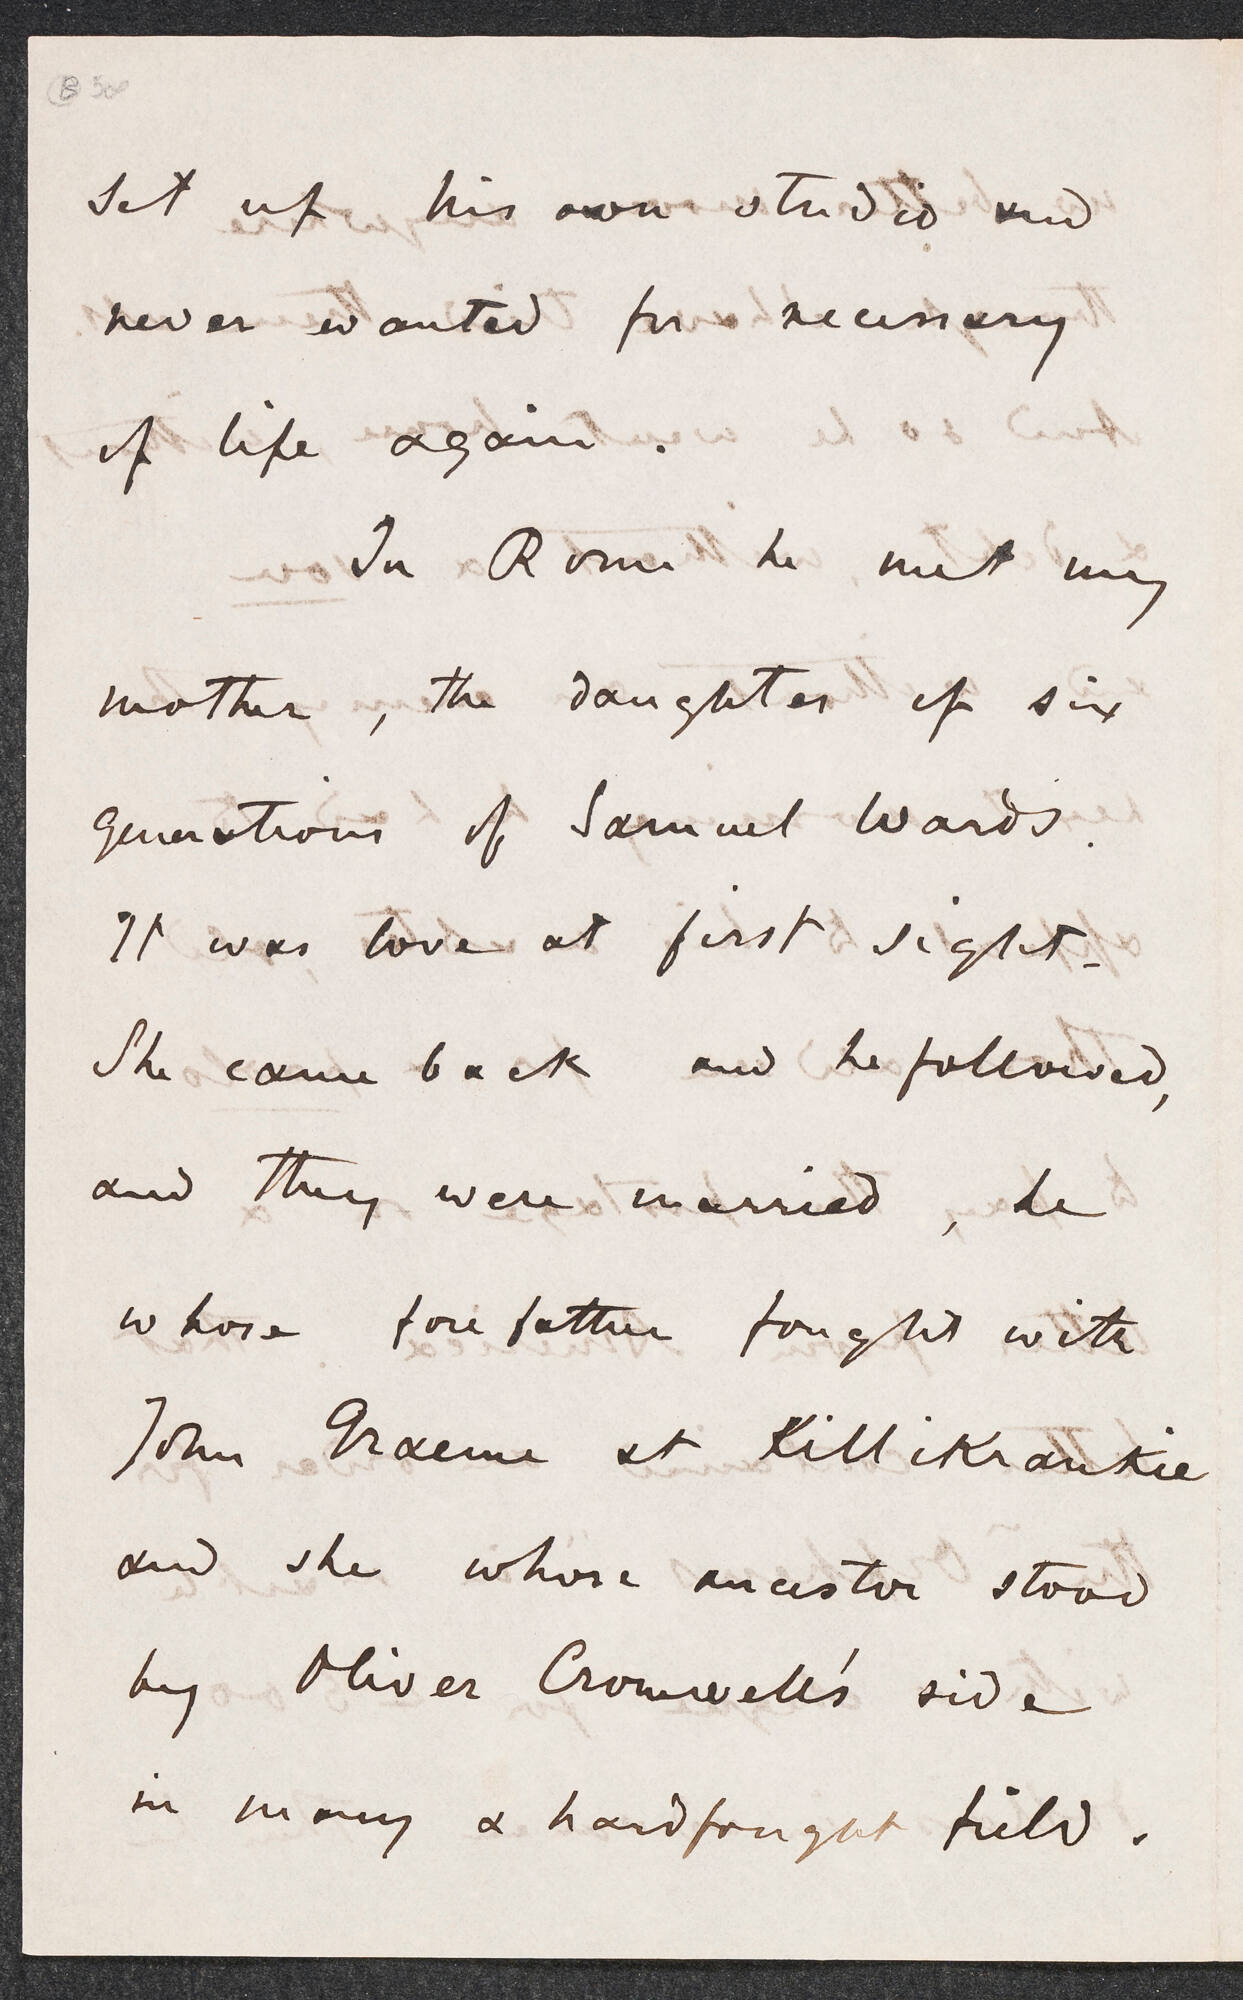 set up his own studio and
never wanted for necessary
of life again.
In Rome he met my
mother, the daughter of six
generations of Samuel Wards.
It was love at first sight.
She came back and he followed,
and they were married, he
whose forefather fought with
John Graeme at Killikrankie
and she whose ancestor stood
by Oliver Cromwell's side
in many a hardfought field.